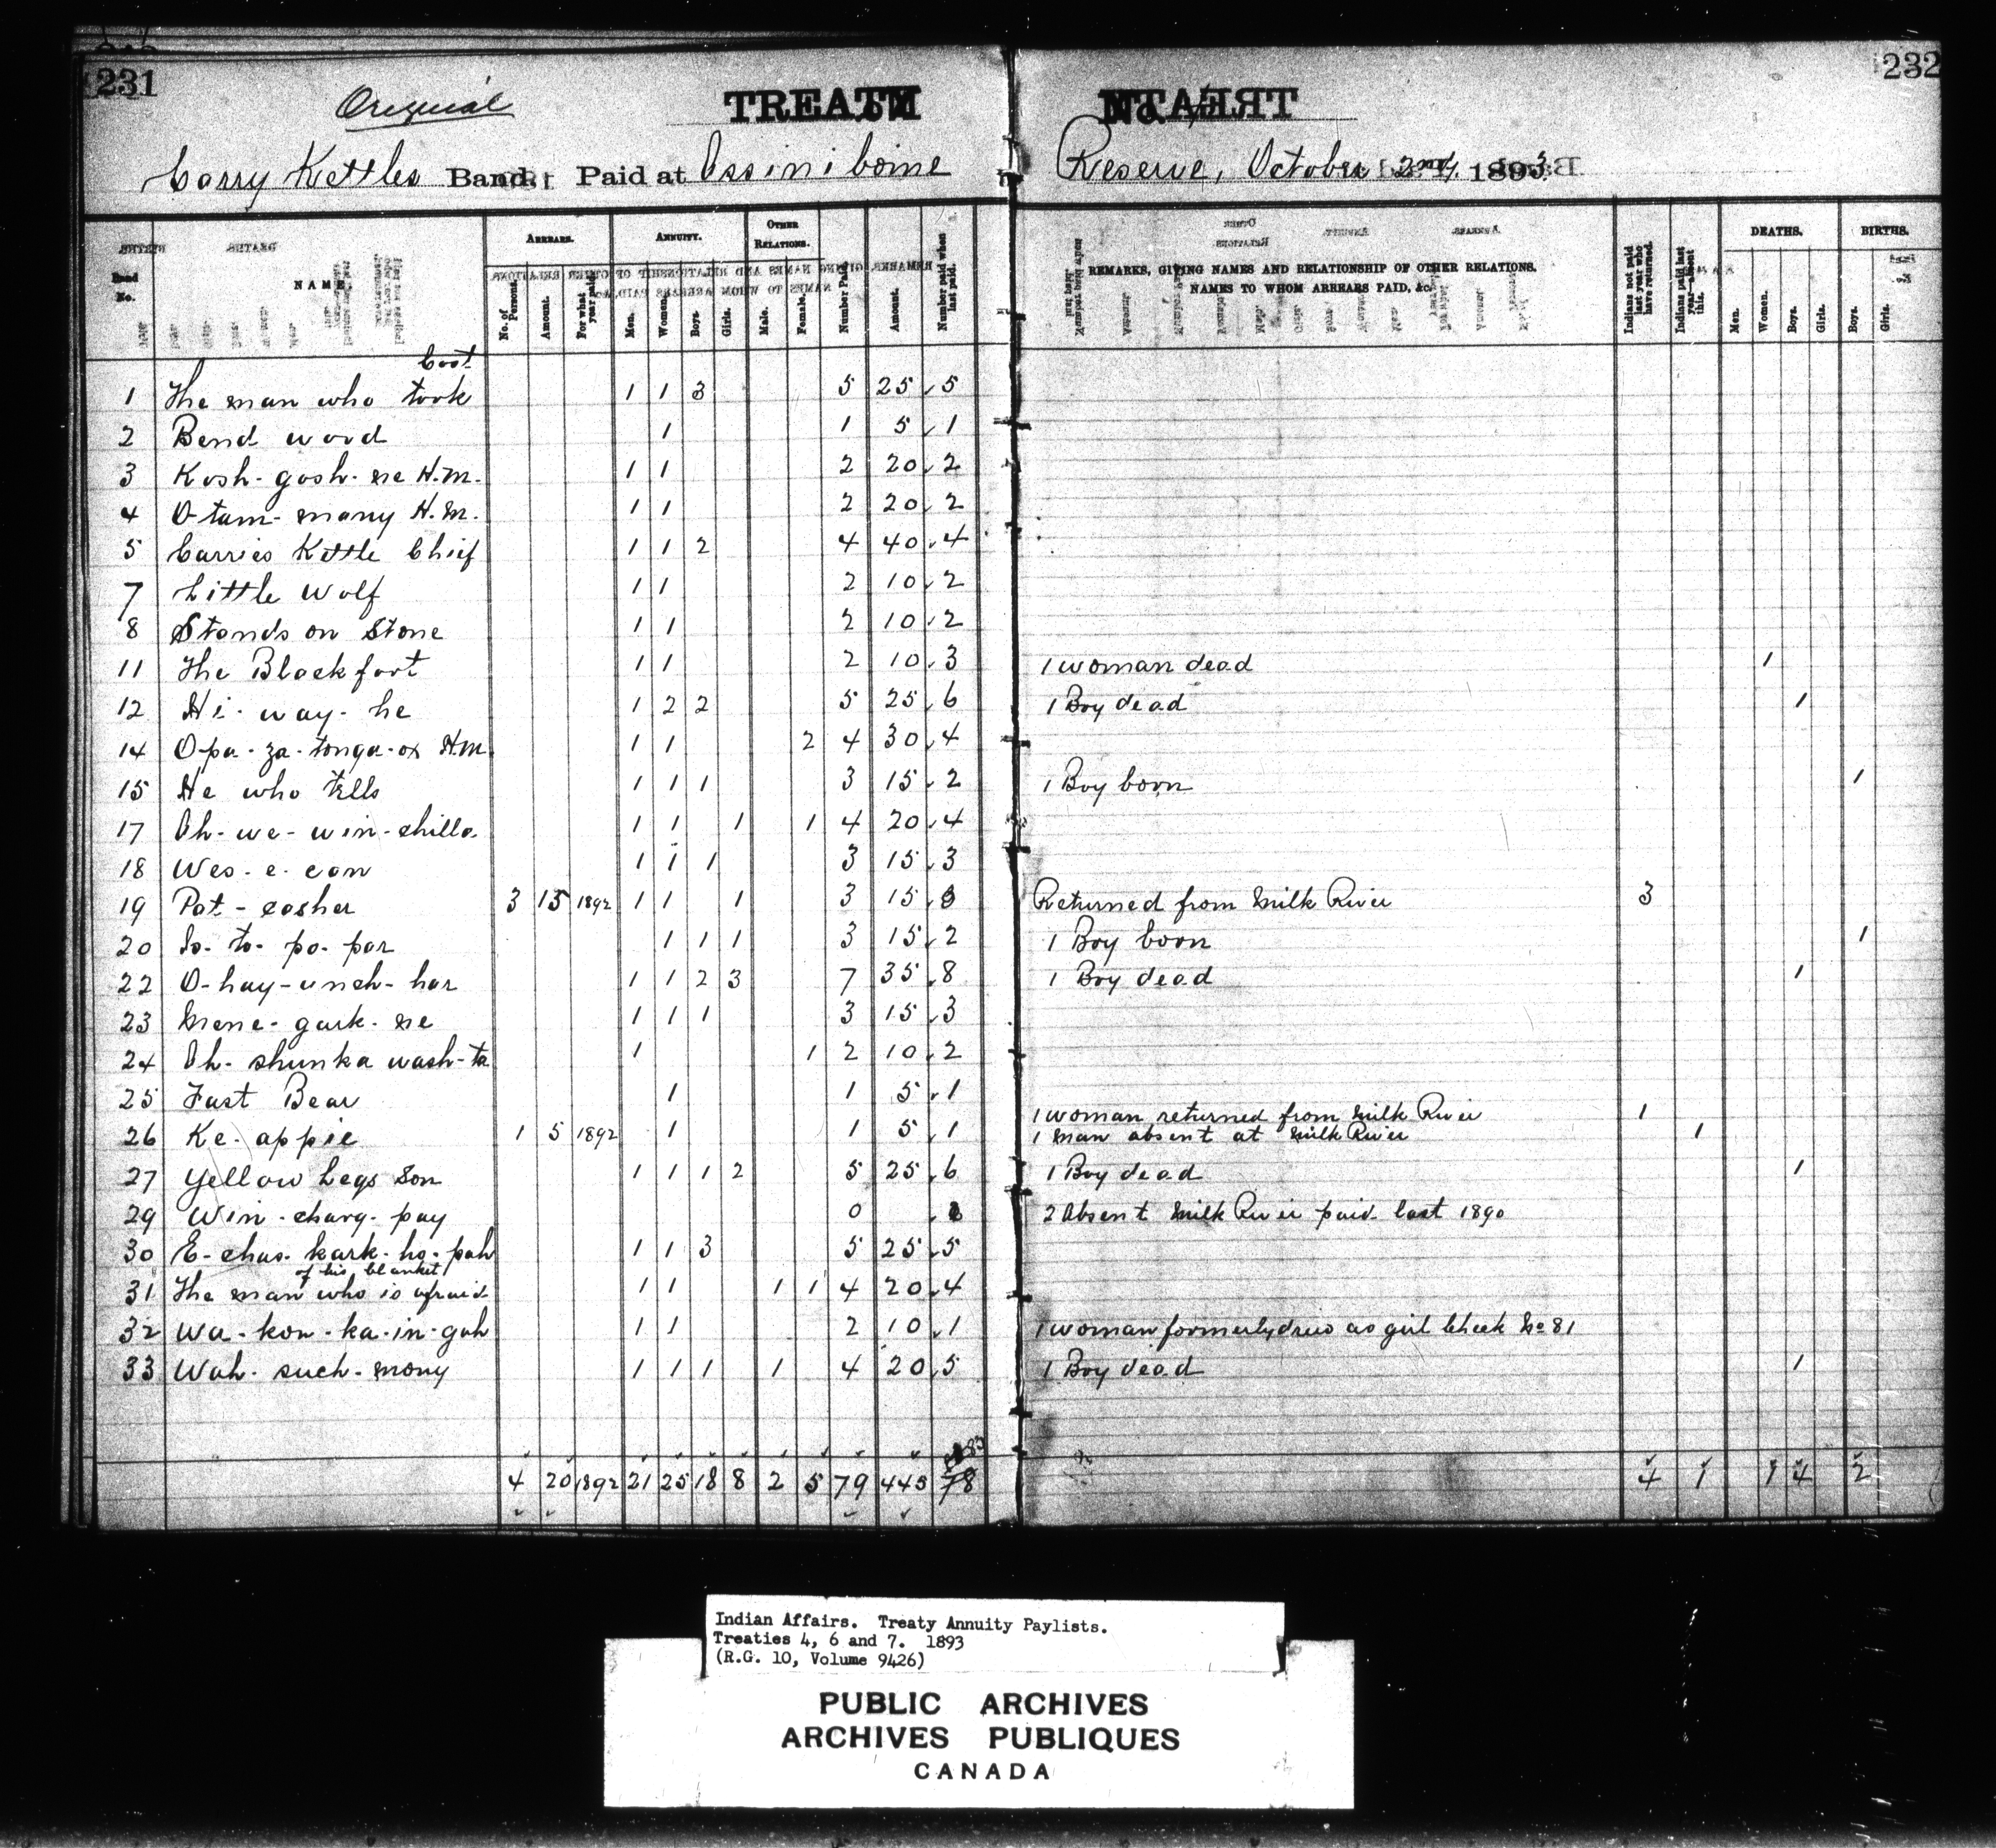 231
232
Original
TREATY
No. 4
Carry Kettles Band. Paid at Assiniboine Reserve, October 2nd, 1893
Band No.
NAME
ARREARS.
No. of Persons.
Amount.
For what year paid.
ANNUITY.
Men.
Women.
Boys.
Girls.
OTHER RELATIONS.
Male.
Female.
Number Paid.
Amount.
Number paid when last paid.
REMARKS, GIVING NAMES AND RELATIONSHIP OF OTHER RELATIONS.
NAMES TO WHOM ARREARS PAID, &c.
Indians not paid last year who have returned.
Indians paid last year—absent this.
DEATHS.
Men.
Women.
Boys.
Girls.
BIRTHS.
Boys.
Girls.
Coat
1 The man who took 1 1 3 5 25 5
2 Bend wood 1 1 5 1
3 Kosh-gosh-ne H.M. 1 1 2 20 2
4 O-tam-many H.M. 1 1 2 20 2
5 Carries Kettle Chief 1 1 2 4 40 4
7 Little Wolf 1 1 2 10 2
8 Stands on Stone 1 1 2 10 2
11 The Blackfoot 1 1 2 10 3 1 woman dead 1
12 Hi-way-he 1 2 2 5 25 6 1 Boy dead 1
14 Opa-za-tonga-ox H.M. 1 1 2 4 30 4
15 He who tells 1 1 1 3 15 2 1 Boy born 1
17 Oh-we-win-chilla 1 1 1 1 4 20 4
18 Wes-e-can 1 1 1 3 15 3
19 Pat-casher 3 15 1892 1 1 1 3 15 3 Returned from Milk River 3
20 Is-to-po-par 1 1 1 3 15 2 1 Boy born 1
22 O-hay-unch-har 1 1 2 3 7 35 8 1 Boy dead 1
23 Mene-gark-ne 1 1 1 3 15 3
24 Oh-shunka wash-ta 1 1 2 10 2
25 Fast Bear 1 1 5 1
1 woman returned from Milk River 1
26 Ke-appie 1 5 1892 1 1 5 1 1 man absent at Milk River 1
27 Yellow Legs Son 1 1 1 2 5 25 6 1 Boy dead 1
29 Win-charg-pay 0 2 Absent Milk River paid last 1890
30 E-chas-kark-ho-pah 1 1 3 5 25 5
of his blanket
31 The man who is afraid 1 1 1 1 4 20 4
32 Wa-kon-ka-in-gah 1 1 2 10 1 1 woman formerly drew as girl Cheek No 81
33 Wah-such-mony 1 1 1 1 4 20 5 1 Boy dead 1
83
4 20 1892 21 25 18 8 2 5 79 445 78 4 1 1 4 2
Indian Affairs. Treaty Annuity Paylists.
Treaties 4, 6 and 7. 1893
(R.G. 10, Volume 9426)
PUBLIC ARCHIVES
ARCHIVES PUBLIQUES
CANADA